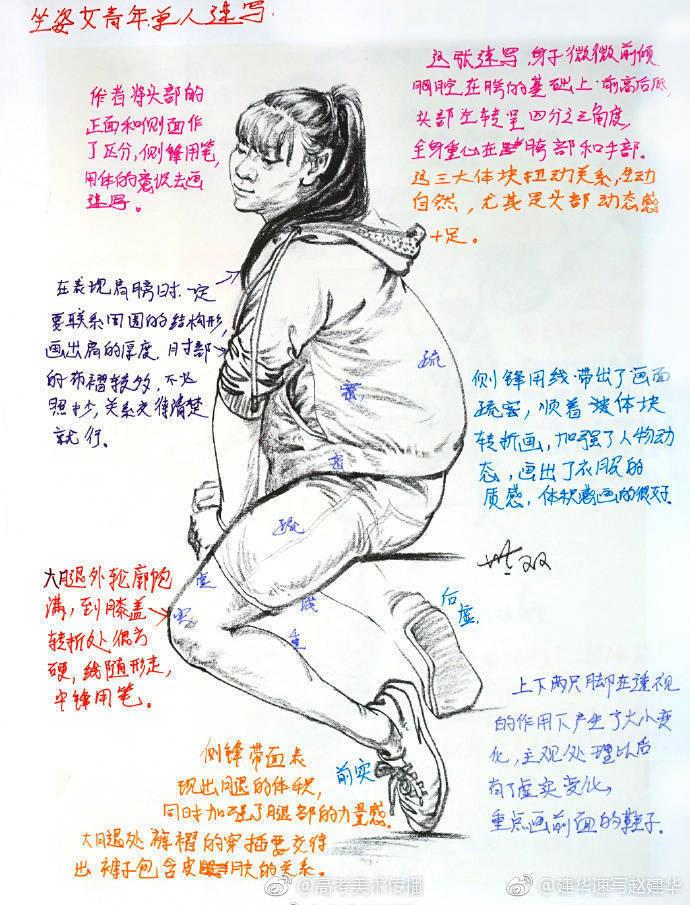 坐姿女青年单人速写
作者将头部的
正面和侧面作
了区分,侧锋用笔,
用体的意识去画
速写。
这张速写,身子微微前倾
胸腔在胯的基础上前高后低,
头部左转呈四分之三角度
全身重心在胯部和手部。
这三大体块扭动关系,生动
自然,尤其是头部动态感
十足。
在表现肩膀时一定
要联系周围的结构形,
画出肩的厚度,肘部
的布褶较多,不必
照抄,关系交待清楚
就行。
疏
密
密
侧锋用线带出了画面
疏密,顺着液体块
转折画,加强了人物动
态,画出了衣服的
质感,体积感画的很好。
疏
大腿外轮廓饱
满,到膝盖
转折处偏方
硬,线随形走,
中锋用笔。
虚
实
浅
重
后
虚
上下两只脚在透视
的作用下产生了大小变
化,主观处理以后
有了虚实变化,
重点画前面的鞋子。
侧锋带面表
现出腿的体积,
同时加强了腿部的力量感。
大腿处裤褶的穿插要交待
出裤子包含皮肤的关系。
前实
@高考美术传播
@建华速写赵建华